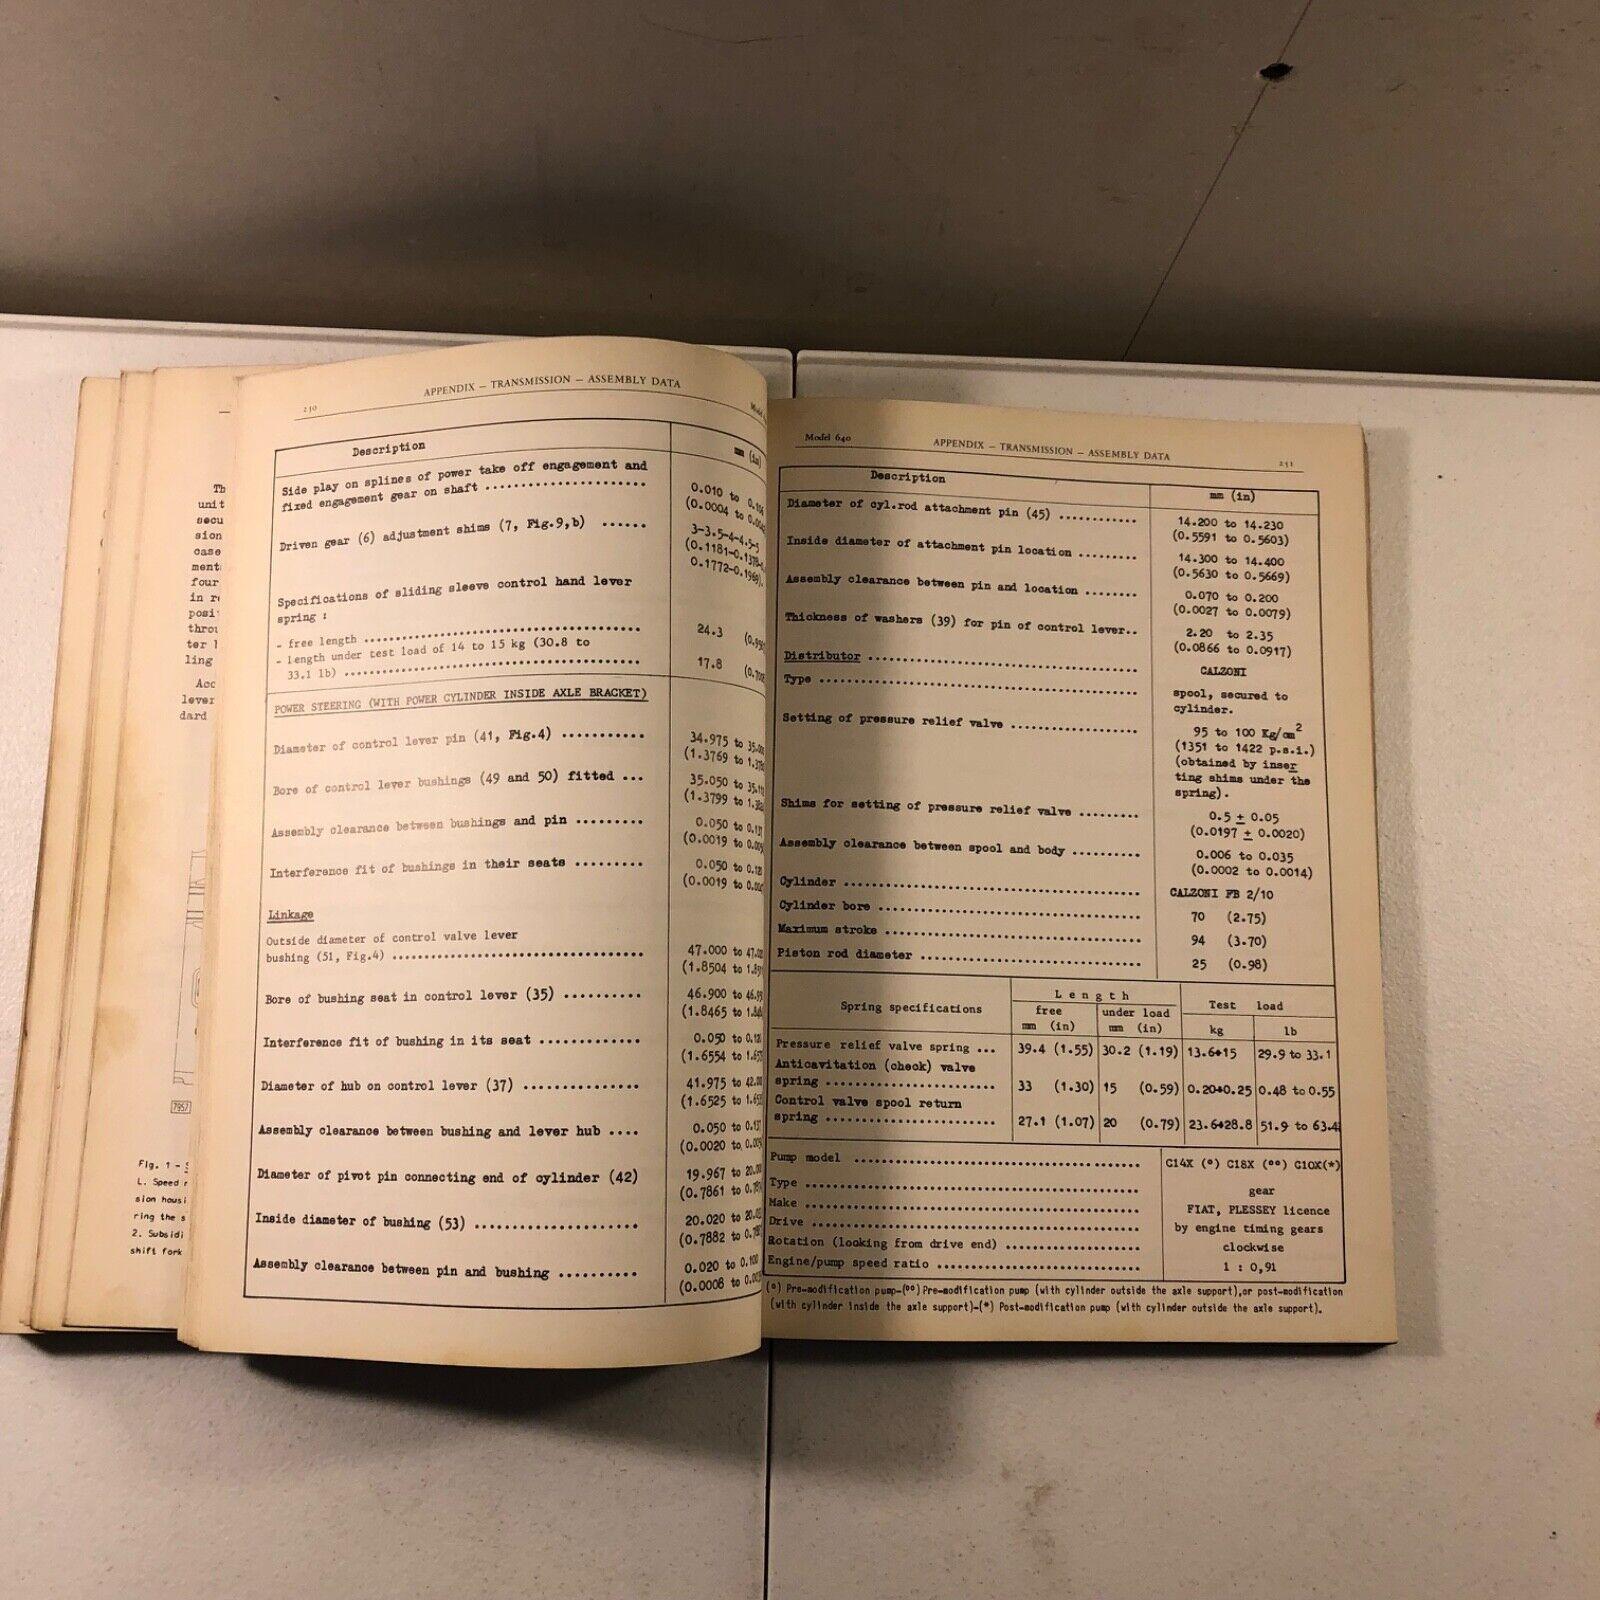 Th
unit
secu
sion
case
ment
four
in re
posi
throu
ter l
ling
Acc
lever
dard
7957
Fig. 1 -
L. Speed
sion housi
ring the s
2. Subsidi
shift fork
230
APPENDIX — TRANSMISSION — ASSEMBLY DATA
Model
Description
mm (in)
Side play on splines of power take off engagement and
fixed engagement gear on shaft
0.010 to
(0.0004 to
Driven gear (6) adjustment shims (7, Fig.9,b)
3-3.5-4-4.5-5
(0.1181-0.1378-
0.1772-0.1969).
Specifications of sliding sleeve control hand lever
spring :
- free length
24.3
- length under test load of 14 to 15 kg (30.8 to
33.1 lb)
17.8
POWER STEERING (WITH POWER CYLINDER INSIDE AXLE BRACKET)
Diameter of control lever pin (41, Fig.4)
34.975 to
(1.3769 to
Bore of control lever bushings (49 and 50) fitted ...
35.050 to
(1.3799 to
Assembly clearance between bushings and pin
0.050 to
(0.0019 to
Interference fit of bushings in their seats
0.050 to
(0.0019 to
Linkage
Outside diameter of control valve lever
bushing (51, Fig.4)
47.000 to
(1.8504 to
Bore of bushing seat in control lever (35)
46.900 to
(1.8465 to
Interference fit of bushing in its seat
0.050 to
(1.6554 to
Diameter of hub on control lever (37)
41.975 to
(1.6525 to
Assembly clearance between bushing and lever hub ....
0.050 to
(0.0020 to
Diameter of pivot pin connecting end of cylinder (42)
19.967 to
(0.7861 to
Inside diameter of bushing (53)
20.020 to
(0.7882 to
Assembly clearance between pin and bushing
0.020 to
(0.0008 to
Model 640
APPENDIX — TRANSMISSION — ASSEMBLY DATA
251
Description
mm (in)
Diameter of cyl.rod attachment pin (45)
14.200 to 14.230
(0.5591 to 0.5603)
Inside diameter of attachment pin location
14.300 to 14.400
(0.5630 to 0.5669)
Assembly clearance between pin and location
0.070 to 0.200
(0.0027 to 0.0079)
Thickness of washers (39) for pin of control lever..
2.20 to 2.35
(0.0866 to 0.0917)
Distributor
CALZONI
Type
spool, secured to
cylinder.
Setting of pressure relief valve
95 to 100 Kg/cm2
(1351 to 1422 p.s.i.)
(obtained by inser
ting shims under the
spring).
Shims for setting of pressure relief valve
0.5 ± 0.05
(0.0197 ± 0.0020)
Assembly clearance between spool and body
0.006 to 0.035
(0.0002 to 0.0014)
Cylinder
CALZONI FB 2/10
Cylinder bore
70 (2.75)
Maximum stroke
94 (3.70)
Piston rod diameter
25 (0.98)
Spring specifications
Length
free
mm (in)
under load
mm (in)
Test load
kg
lb
Pressure relief valve spring ... 39.4 (1.55) 30.2 (1.19) 13.6÷15 29.9 to 33.1
Anticavitation (check) valve
spring 33 (1.30) 15 (0.59) 0.20÷0.25 0.48 to 0.55
Control valve spool return
spring 27.1 (1.07) 20 (0.79) 23.6÷28.8 51.9 to 63.4
Pump model C14X (°) C18X (°°) C10X(*)
Type gear
Make FIAT, PLESSEY licence
Drive by engine timing gears
Rotation (looking from drive end) clockwise
Engine/pump speed ratio 1 : 0,91
(°) Pre-modification pump-(°°) Pre-modification pump (with cylinder outside the axle support),or post-modification
(with cylinder inside the axle support)-(*) Post-modification pump (with cylinder outside the axle support).